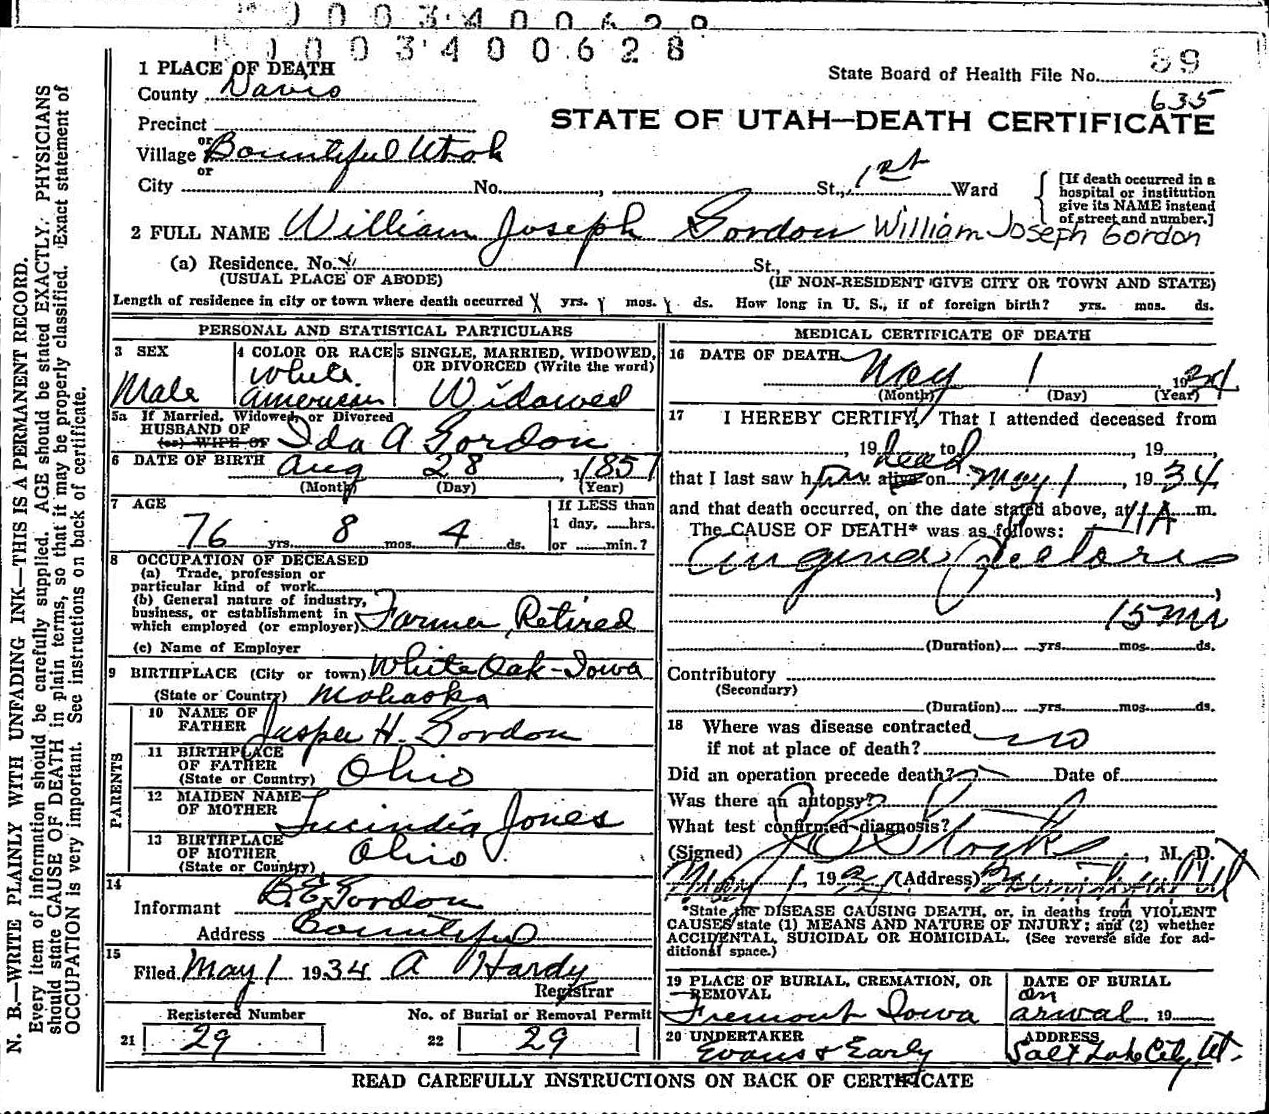 0003400628
0003400628
1 PLACE OF DEATH
State Board of Health File No. 89
County Davis
635
Precinct
STATE OF UTAH—DEATH CERTIFICATE
or
Village Bountiful Utah
or
City No. , St., 1st Ward
[If death occurred in a hospital or institution give its NAME instead of street and number.]
2 FULL NAME William Joseph Gordon William Joseph Gordon
(a) Residence. No. St.,
(USUAL PLACE OF ABODE) (IF NON-RESIDENT GIVE CITY OR TOWN AND STATE)
Length of residence in city or town where death occurred yrs. mos. ds. How long in U. S., if of foreign birth? yrs. mos. ds.
PERSONAL AND STATISTICAL PARTICULARS
3 SEX
Male
4 COLOR OR RACE
White
american
5 SINGLE, MARRIED, WIDOWED,
OR DIVORCED (Write the word)
Widowed
5a If Married, Widowed, or Divorced
HUSBAND OF
(or) WIFE OF
Ida A Gordon
6 DATE OF BIRTH Aug 28, 1857
(Month) (Day) (Year)
7 AGE
76 yrs. 8 mos. 4 ds.
If LESS than
1 day, ......hrs.
or ......min.?
8 OCCUPATION OF DECEASED
(a) Trade, profession or
particular kind of work
(b) General nature of industry,
business, or establishment in
which employed (or employer) Farmer Retired
(c) Name of Employer
9 BIRTHPLACE (City or town) White Oak-Iowa
(State or Country) Mahaska
PARENTS
10 NAME OF
FATHER Jasper H. Gordon
11 BIRTHPLACE
OF FATHER
(State or Country) Ohio
12 MAIDEN NAME
OF MOTHER Lucindia Jones
13 BIRTHPLACE
OF MOTHER
(State or Country) Ohio
14
Informant B.E. Gordon
Address Bountiful
15
Filed May 1 1934 A Hardy
Registrar
Registered Number
21 29
No. of Burial or Removal Permit
22 29
MEDICAL CERTIFICATE OF DEATH
16 DATE OF DEATH
May 1 1934
(Month) (Day) (Year)
17 I HEREBY CERTIFY, That I attended deceased from
, 19 to , 19
dead
that I last saw him alive on May 1, 1934
and that death occurred, on the date stated above, at 11A m.
The CAUSE OF DEATH* was as follows:
Angina Pectoris
15 mi
(Duration) yrs. mos. ds.
Contributory
(Secondary)
(Duration) yrs. mos. ds.
18 Where was disease contracted
if not at place of death? no
Did an operation precede death? Date of
Was there an autopsy?
What test confirmed diagnosis?
(Signed) Stocks, M. D.
May 1, 1934 (Address) Bountiful Ut
*State the DISEASE CAUSING DEATH, or, in deaths from VIOLENT
CAUSES state (1) MEANS AND NATURE OF INJURY; and (2) whether
ACCIDENTAL, SUICIDAL OR HOMICIDAL. (See reverse side for ad-
ditional space.)
19 PLACE OF BURIAL, CREMATION, OR
REMOVAL
Fremont Iowa
DATE OF BURIAL
on
arival 19
20 UNDERTAKER
Evans & Early
ADDRESS
Salt Lake City, Ut.
READ CAREFULLY INSTRUCTIONS ON BACK OF CERTIFICATE
N. B.—WRITE PLAINLY WITH UNFADING INK—THIS IS A PERMANENT RECORD.
Every item of information should be carefully supplied. AGE should be stated EXACTLY. PHYSICIANS
should state CAUSE OF DEATH in plain terms, so that it may be properly classified. Exact statement of
OCCUPATION is very important. See instructions on back of certificate.